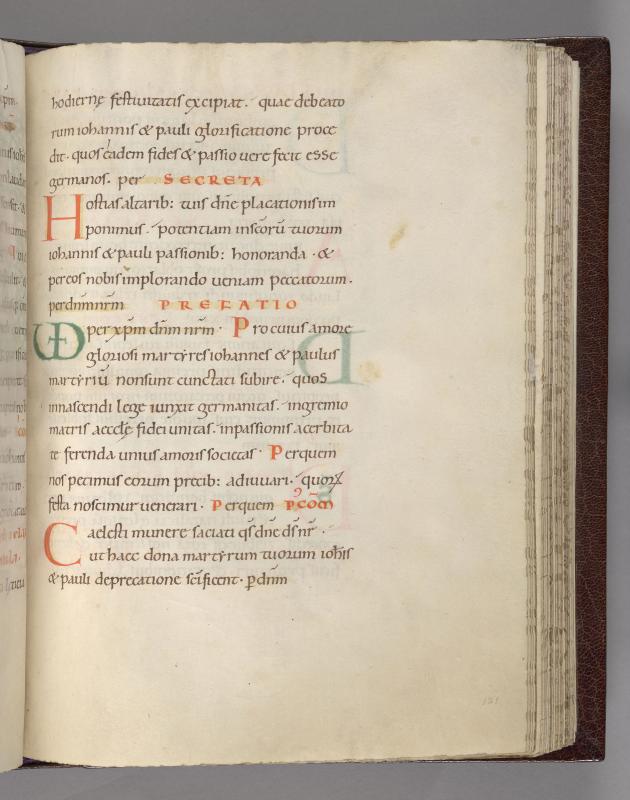 hodiernę festiuitatis excipiat. quae debeato
rum iohannis & pauli glorificatione proce
dit. quos eadem fides & passio uere fecit esse
germanos. per SECRETA
Hostias altarib: tuis dn̄e placationis im
ponimus. potentiam in sc̄orū tuorum
iohannis & pauli passionib: honoranda. &
per eos nobis implorando ueniam peccatorum.
per dn̄m nr̄m PREFATIO
per xp̄m dn̄m nr̄m. Pro cuius amore
gloriosi martyres iohannes & paulus
martyriū non sunt cunctati subire. quos
in nascendi lege iunxit germanitas. in gremio
matris aeccłę fidei unitas. in passionis acerbita
te ferenda unius amoris societas. Per quem
nos petimus eorum precib: adiuuari. quorꝝ
festa noscimur uenerari. Per quem PCOM̄
Caelesti munere saciati qs̄ dn̄e ds̄ nr̄.
ut haec dona martyrum tuorum ioh̄is
& pauli deprecatione sc̄ificent. ꝑ dn̄m
131